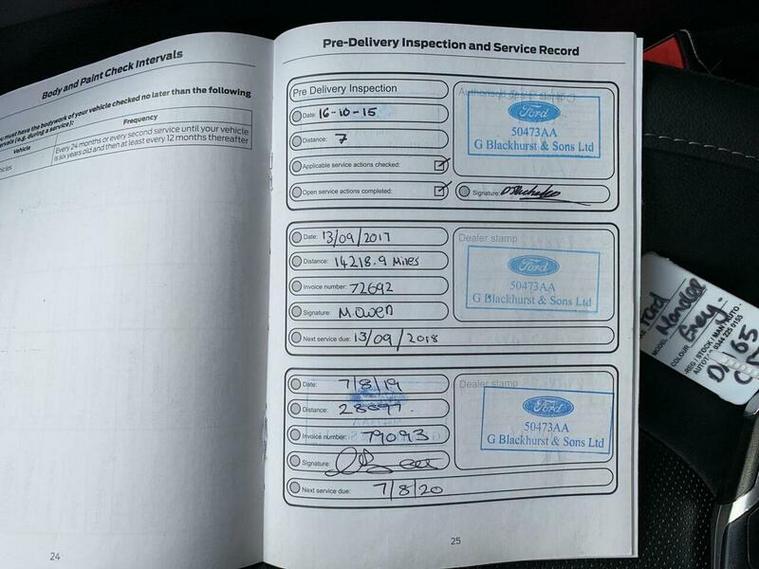 Body and Paint Check Intervals
must have the bodywork of your vehicle checked no later than the following
(e.g. during a service):
Vehicle
Frequency
Every 24 months or every second service until your vehicle
is six years old and then at least every 12 months thereafter
24
Pre-Delivery Inspection and Service Record
Pre Delivery Inspection
Date: 16-10-15
Distance: 7
Applicable service actions checked:
Open service actions completed:
Ford
50473AA
G Blackhurst & Sons Ltd
Signature:
Date: 13/09/2017
Distance: 14218.9 Miles
Invoice number: 72692
Signature: M.Owen
Next service due: 13/09/2018
Dealer stamp
Ford
50473AA
G Blackhurst & Sons Ltd
Date: 7/8/19
Distance:
Invoice number: 79093
Signature:
Next service due: 7/8/20
Dealer stamp
Ford
50473AA
G Blackhurst & Sons Ltd
25
Ford
MODEL: Mondeo
COLOUR: Grey
REG / STOCK / MAN / AUTO
0344 225 0155
65